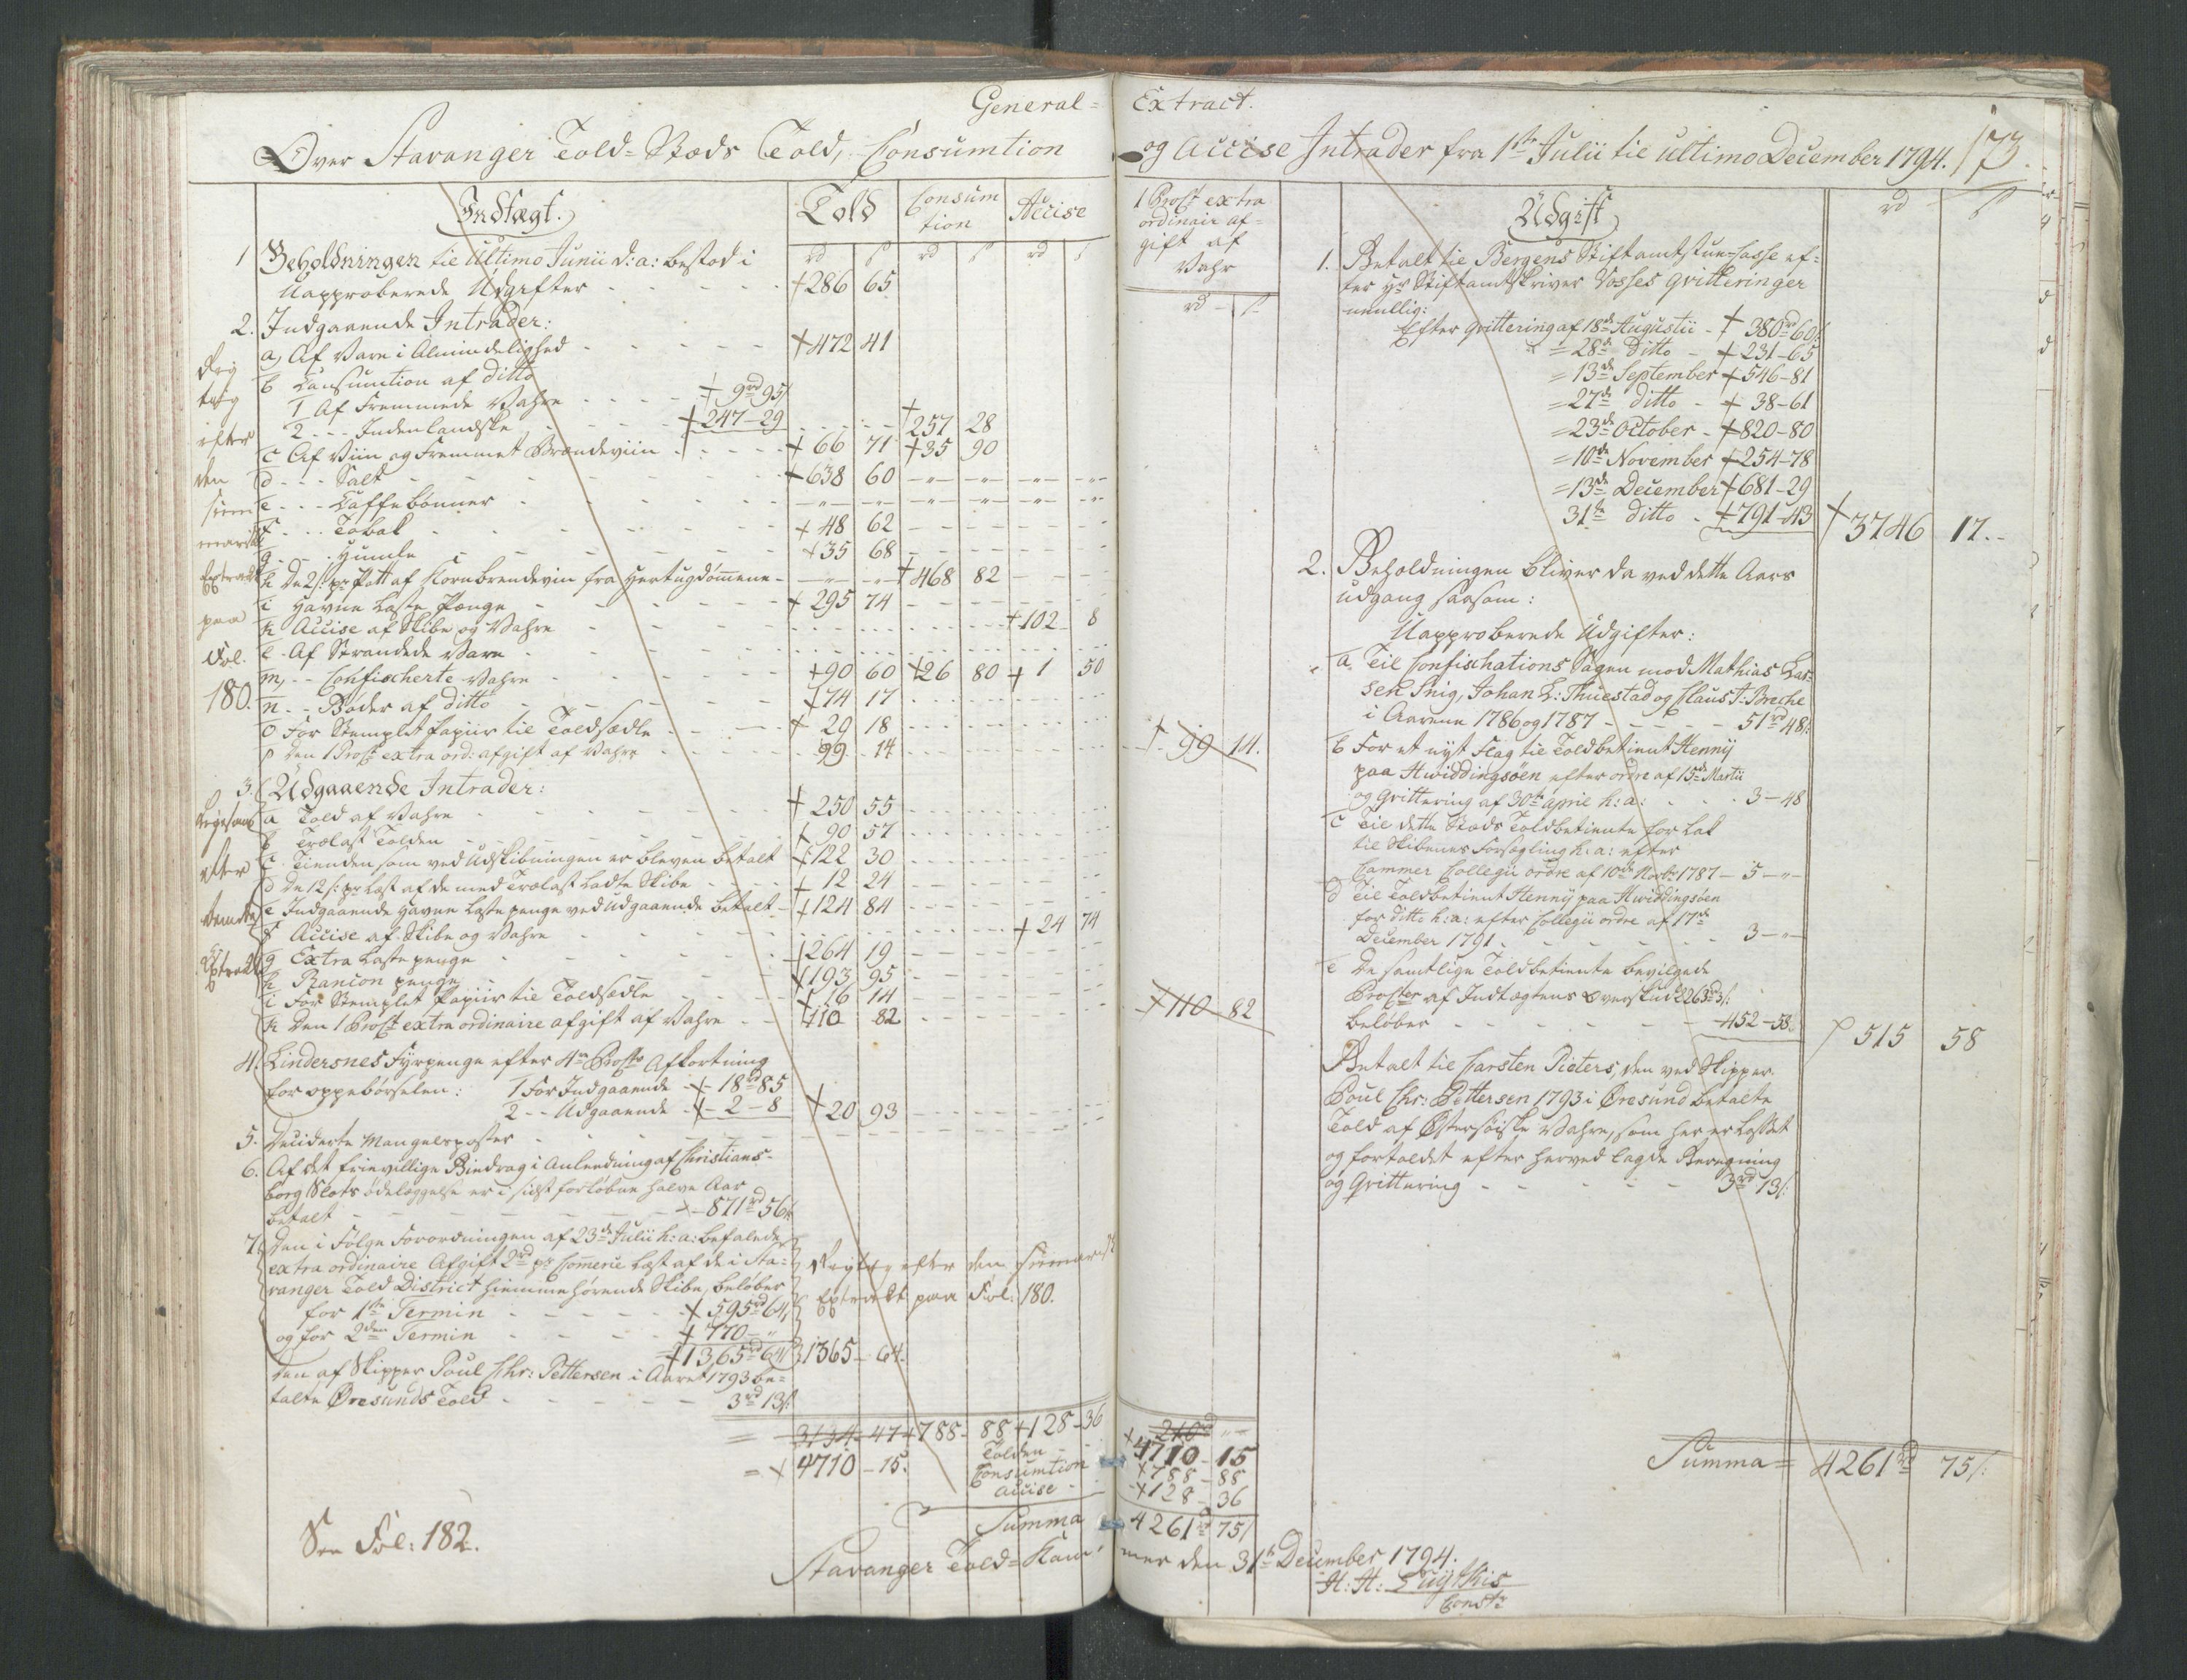 General=
Over Stavanger Told=Stæds Told, Consumtion
Indtægt.
Told
Consum
tion
Accise
rd s rd s rd s
1 Beholdningen til Ultimo Junii d: a: bestod i
Uapproberede Udgifter - - - +286 65
2. Indgaaende Intrader:
a, Af Vare i Almindelighed - - - +472 41
b Consumtion af ditto
1 Af Fremmede Vahre - - - + 9rd 95s
2 - - Indenlandske - - - +247-29 - - - +257 28
c Af Viin og Fremmet Brændeviin - - - + 66 71 +35 90
d - - - Salt - - - +638 60 -"- -"- -"- -"-
e - - - Caffebønner - - - -"- -"- -"- -"- -"- -"-
f - - - Tobak - - - + 48 62
g - - - Humle - - - +35 68
h De 2s: pr Pott af Kornbrendeviin fra Hertugdømmene - -"- -"- +468 82
i Havne Laste Penge - - - + 295 74
k Accise af Skibe og Vahre - - - +102 8
l - Af Strandede Vare - - -
m, - - Confischerte Vahre - - - +90 60 +26 80 + 1 50
n - - Bøder af ditto - - - +74 17
o For Stemplet Papiir til Toldsedle - - - + 29 18
p Den 1 Proct extra ord: afgift af Vahre - - - 99 14
Rig
tig
efter
den
sum
mariske
Extract
paa
Fol.
180.
3. Udgaaende Intrader:
a Told af Vahre - - - + 250 55
b Trælast Tolden - - - + 90 57
c Tienden som ved Udskibningen er bleven betalt +122 30
d De 12 s: pr Læst af de med Trælast ladte Skibe - - - + 12 24
e Indgaaende Havne Laste penge ved Udgaaende betalt - +124 84
f Accise af Skibe og Vahre - - - + 24 74
g Extra Laste penge - - - +264 19
h Rancon penge - - - +193 95
i For Stemplet Papiir til Toldsedle - - - + 16 14
k Den 1 Proct extra ordinaire afgift af Vahre - - +110 82
Ligesaa
efter
bemeldte
Extract
4. Lindersnes Fyrpenge efter 4re Procto Afkortning
for oppebørselen: 1 For Indgaaende + 18rd 85
2 - - Udgaaende + 2 - 8 +20 93
5. Deciderte Mangelsposter - - -
6. Af det frievillige Biedrag i Anledning af Christians-
borg Slots ødelæggelse er i sidst forløbne halve Aar
betalt - - - + 871rd 56s
7. Den i Følge Forordningen af 23de Julii h: a: befalede
extra ordinaire Afgift 2rd pr Commerce Læst af de i Sta-
vanger Told District hiemmehørende Skibe, beløber
for 1ste Termin - - - + 595rd 64s
og for 2den Termin - - - + 770 - "
+1365rd 64s 1365 - 64.
Rigtig efter den summariske
Extract paa Fol: 180.
Den af Skipper Poul Chr: Pettersen i Aaret 1793 be-
talte Øresunds Told - - - 3rd 13s
= 3134-47+788- 88+128-36
= + 4710 - 15.
Tolden
Consumtion
Accise
Summa
See Fol: 182.
Stavanger Told=Kam-
Extract.
og Accise Intrader fra 1ste Julii til ultimo December 1794. 173.
1 Proct extra
ordinair af-
gift af
Vahr
rd - s
+ 99 14.
+110 82
210rd "
+4710-15
+788-88
+128-36
4261rd 75s
Udgift
rd s
1. Betalt til Bergens Stiftamtstue-Casse ef-
ter Hr Stiftamtskriver Vosses qvitteringer
nemlig:
Efter qvittering af 18de Augustii - + 380rd 60s
= 28de ditto - + 231-65
= 13de September + 546-81
= 27de ditto - + 38-61
= 23de October - +820-80
= 10de November +254-78
= 13de December +681-29
31te ditto - +791-43 +3746 17.-
2. Beholdningen bliver da ved dette Aars
udgang saasom:
Uapproberede Udgifter:
a. Til Confischations Sagen mod Mathias Las-
sen Snig, Johan L: Thuestad og Claus J: Breche
i Aarene 1786 og 1787 - - - 51rd 48s:
b For et nyt Flag til Toldbetient Henny
paa Hwiddingsöen efter ordre af 15de Martii
og Qvittering af 30te April h: a: - - 3-48
c Til dette Stæds Toldbetiente for Lak
til Skibenes Forsegling h: a: efter
Cammer Collegii ordre af 10de Novbr 1787 - 5-"-
d Til Toldbetient Henny paa Hwiddingsöen
for ditto h: a: efter Collegii ordre af 17de
December 1791 - - - 3-"-
e De samtlige Toldbetiente bevilgede
Procter af Indtægtens Overskud 2263rd 3s:
beløber - - - 452-58 515 58
Betalt til Carsten Pieters, den ved Skipper
Poul Chr: Pettersen 1793 i Øresund betalte
Told af Østersøiske Vahre, som her er losset
og fortoldet efter herved lagde Beregning
og Qvittering - - - 3rd 13s:
Summa = 4261rd 75s:
mer den 31te December 1794.
H: H:
Const: